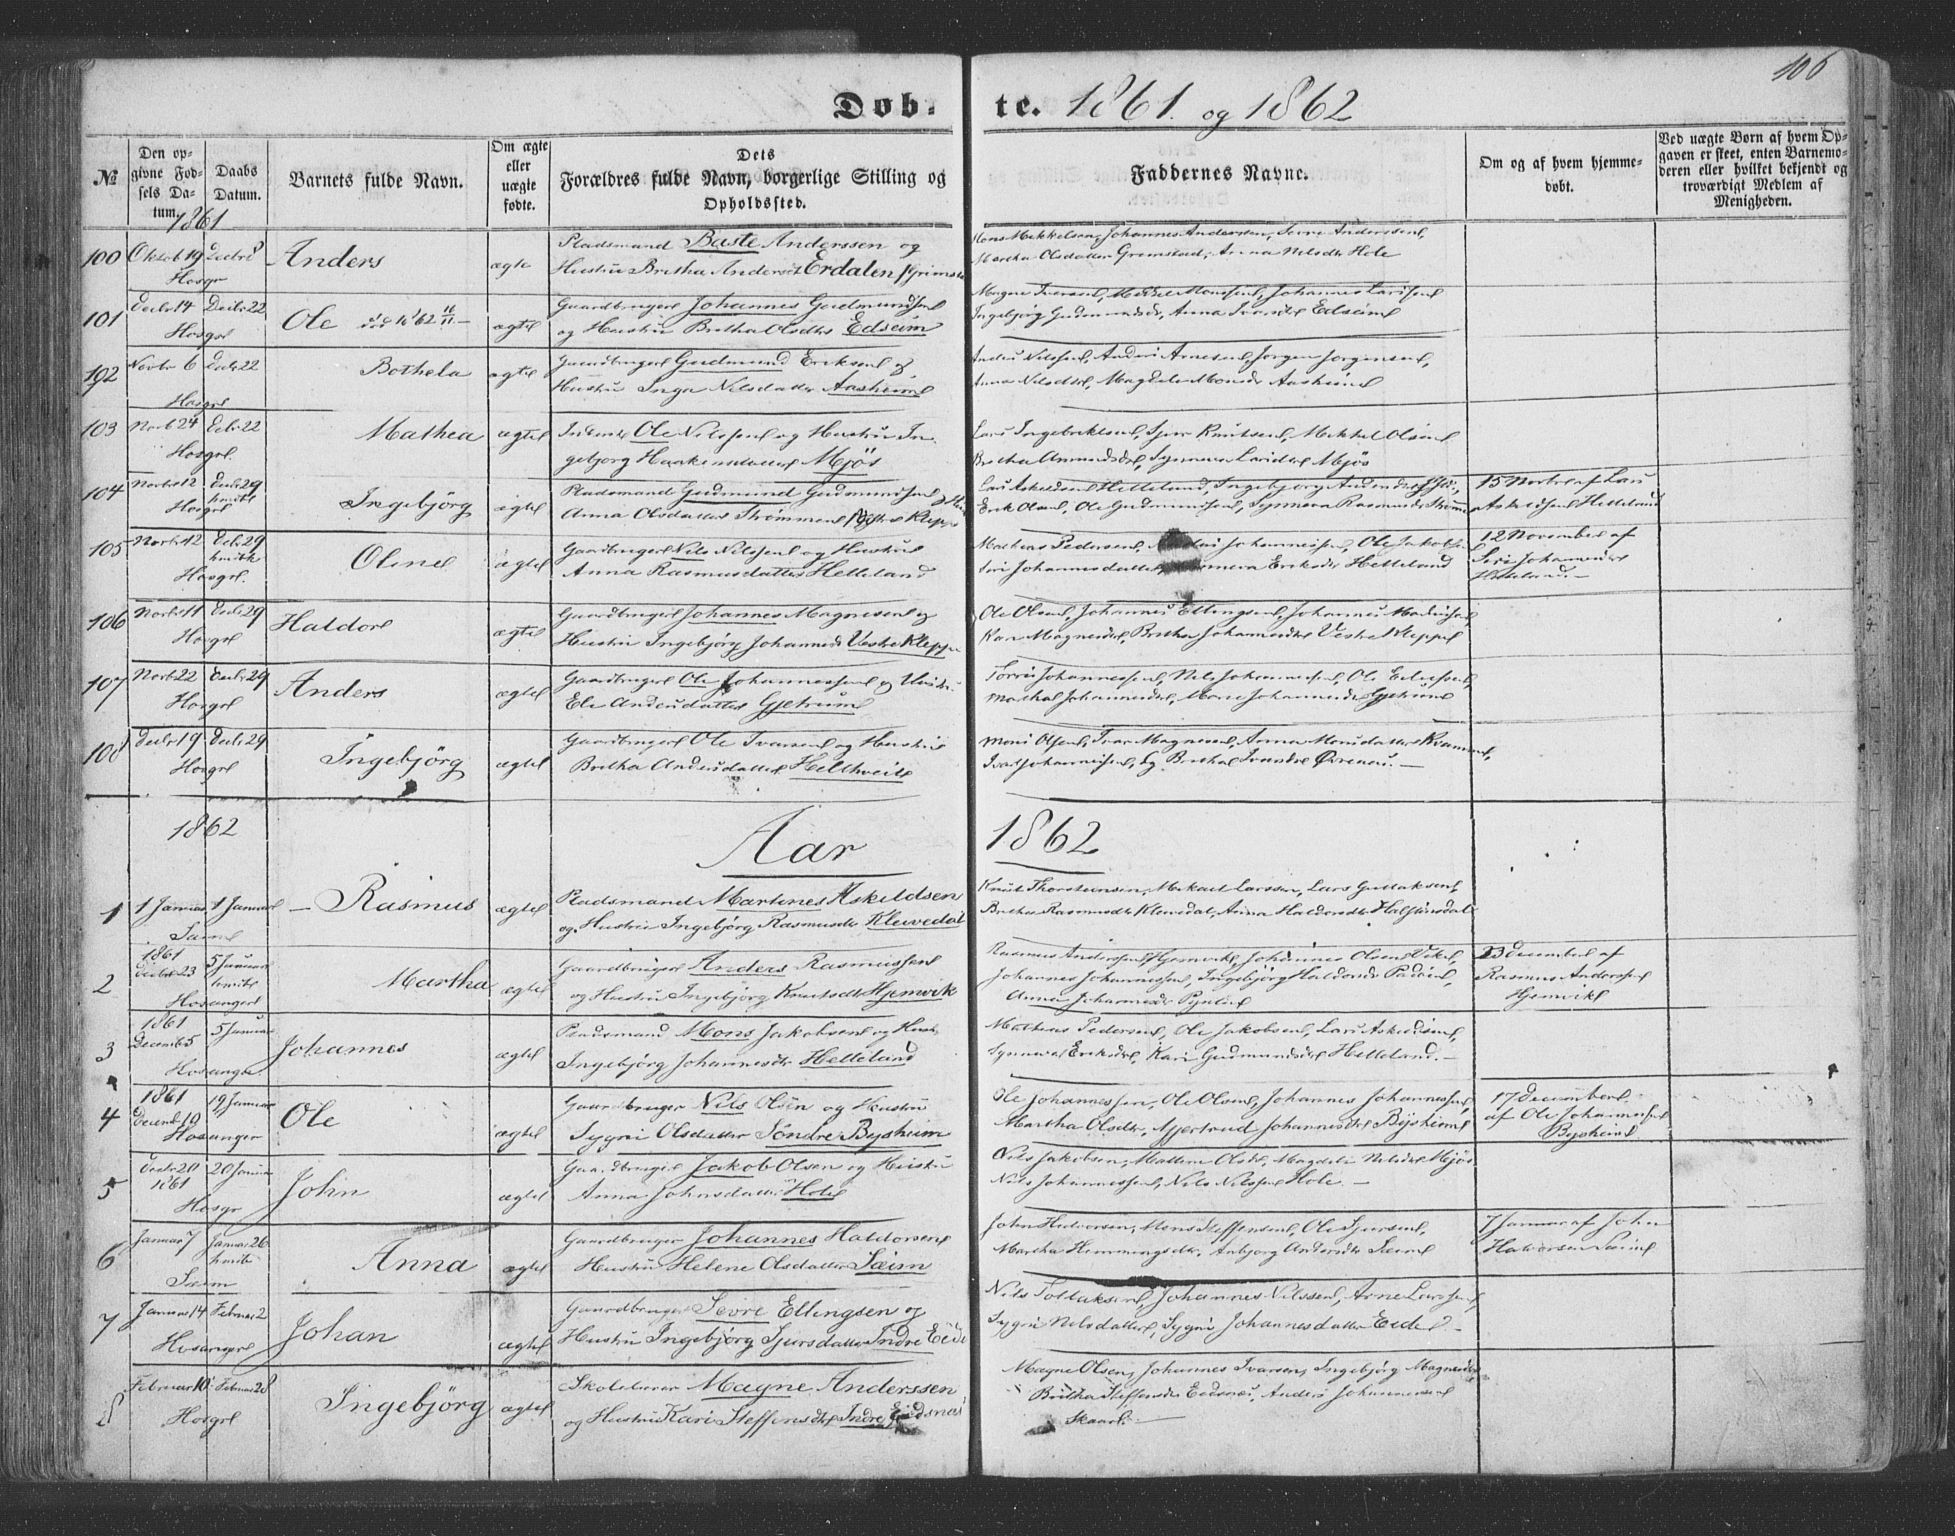 106
Døb- te. 1861. og 1862
№
Den op-
givne Fød-
sels Da-
tum.
Daabs
Datum.
Barnets fulde Navn.
Om ægte
eller
uægte
fødte.
Dets
Forældres fulde Navn, borgerlige Stilling og
Opholdssted.
Faddernes Navne.
Om og af hvem hjemme-
døbt.
Ved uægte Børn af hvem Op-
gaven er skeet, enten Barnemo-
deren eller hvilket bekjendt og
troværdigt Medlem af
Menigheden.
1861
100 Oktob 19 Decbr 8 Anders ægte Pladsmand Baste Anderssen og
Hosgr Hustru Britha Andersdt Erdalen
Mons Mikkelsen, Johannes Andersen,
Martha Olsdatter Grimstad, Anna Nilsdtr Hole
101 Decbr 14 Decbr 22 Ole ægte Gaardbruger Johannes Gudmundsen
Hosgr og Hustru Britha Olsdtr Edseim
Magne Iversen, Mikkel Monssen, Johannes Larssen
Ingebjørg Gudmundsdr, Anna Ivarsdtr Edseim
102 Novbr 6 Decbr 22 Bothela ægte Gaardbruger Gudmund Eriksen og
Hosgr Hustru Inga Nilsdatter Aasheim
Anders Nilssen, Anders Arnesen, Jørgen Jørgensen,
Anna Nilsdtr, Magdele Monsdr Aasheim
103 Novb 24 Decbr 22 Mathea ægte Ole Nilssen og Hustru In-
Hosgr gebjørg Haakensdatter Mjøs
Lars Ingebrigtsen, Sjur Knutsen, Mikkel Olsen
Britha Amundsdtr, Synneva Larsdtr Mjøs
104 Novbr 12 Decbr 29 Ingebjørg ægte Pladsmand Gudmund Gudmundssen
Hosgr Anna Olsdatter Strømmen
Lars Askeldsen Helleland, Ingebjørg
Erik Olsen, Ole Gudmundssen, Synneva Rasmusdtr
15 Novbr af Lars
Askeldsen Helleland
105 Novbr 12 Decbr 29 Oline ægte Gaardbruger Nils Nilssen og Hustru
Hosgr Anna Rasmusdatter Helleland
Mathias Pedersen, Johannessen, Ole Jakobsen
Siri Johannesdatter, Eriksdr Helleland
12 November af
Siri Johannesdr
Helleland.—
106 Novbr 11 Decbr 29 Haldor ægte Gaardbruger Johannes Magnesen og
Hosgr Hustru Ingebjørg Johannesdr Vestre Kleppe
Ole Olsen, Johannes Ellingsen, Johannes
Kari Magnesdtr, Britha Johannesdtr Vestre Kleppe
107 Novbr 22 Decbr 29 Anders ægte Gaardbruger Ole Johannessen og Hustru
Hosgr Eli Andersdatter Gjetrum
Johannessen, Nils Johannessen, Ole
Marthe Johannesdtr, Johannesdr Gjetrum
108 Decbr 19 Decbr 29 Ingebjørg ægte Gaardbruger Ole Ivarsen og Hustru
Hosgr Britha Andersdatter Helltveit
Mons Olsen, Ivar Magnesen, Anna Monsdatter Kvamme,
Ivar Johannessen, og Britha Ivarsdtr Øvrenau.—
1862 Aar 1862
1 1 Januar 1 Januar — Rasmus ægte Pladsmand Martines Askildsen
Saim og Hustru Ingebjørg Rasmusdtr Kleivedal
Knut Thorsteinsen, Mikael Larssen, Lars Gullaksen,
Britha Rasmusdtr Kleivdal, Anna Haldorsdtr
2 1861 Decbr 23 5 Januar Martha ægte Gaardbruger Anders Rasmussen
Hosanger og Hustru Ingebjørg Knutsdtr Hjemvik
Rasmus Anderssen Hjemvik, Johannes Olsen
Johannes Johannessen, Ingebjørg Haldorsdr
Anna Johannesdr
23 December af
Rasmus Anderssen
Hjemvik
3 1861 Decemb 5 5 Januar Johannes ægte Pladsmand Mons Jakobsen og Hustr
Hosanger Ingebjørg Johannesdtr Helleland
Mathias Pedersen, Ole Jakobsen, Lars Askeldsen,
Synneva Eriksdtr, Kari Gudmundsdtr Helleland.—
4 1861 Decemb 10 19 Januar Ole ægte Gaardbruger Nils Olsen og Hustru
Hosanger Sygni Olsdatter Søndre Bysheim
Ole Johannessen, Ole Olsen, Johannes Johannessen,
Martha Olsdtr, Gjertrud Johannesdtr Bysheim
17 December
af Ole Johannessen
Bysheim
5 Decbr 20 1861 20 Januar John ægte Gaardbruger Jakob Olsen og Hustru
Hosgr Anna Johnsdatter Hole
Nils Jakobsen, Olsdtr, Magdeli Nilsdtr Mjøs
Nils Johannessen, Nils Nilssen Hole.—
6 Januar 7 Januar 26 Anna ægte Gaardbruger Johannes Haldorsen
Saim Hustru Helene Olsdatter Sæim
John Halvorsen, Mons Steffensen, Ole Sjursen,
Martha Hemmingsdtr, Anbjørg Andersdtr Sæim
7 Januar af John
Halvorsen Sæim
7 Januar 14 Februar 2 Johan ægte Gaardbruger Sevre Ellingsen og
Hosanger Hustru Ingebjørg Sjursdatter Indre Eide
Nils Johannes Nilssen, Arne Larssen,
Sygni Nilsdatter, Sygni Johannesdatter Eide.—
8 Februar 10 Februar 28 Ingebjørg ægte Skolelærer Magne Anderssen
Hosgr og Hustru Kari Steffensdtr Indre Eidsnes
Magne Olsen, Johannes Ivarsen, Ingebjørg Magnesdtr
Britha Steffensdtr Eidsnes, Anders Johannessen
Skaar.—